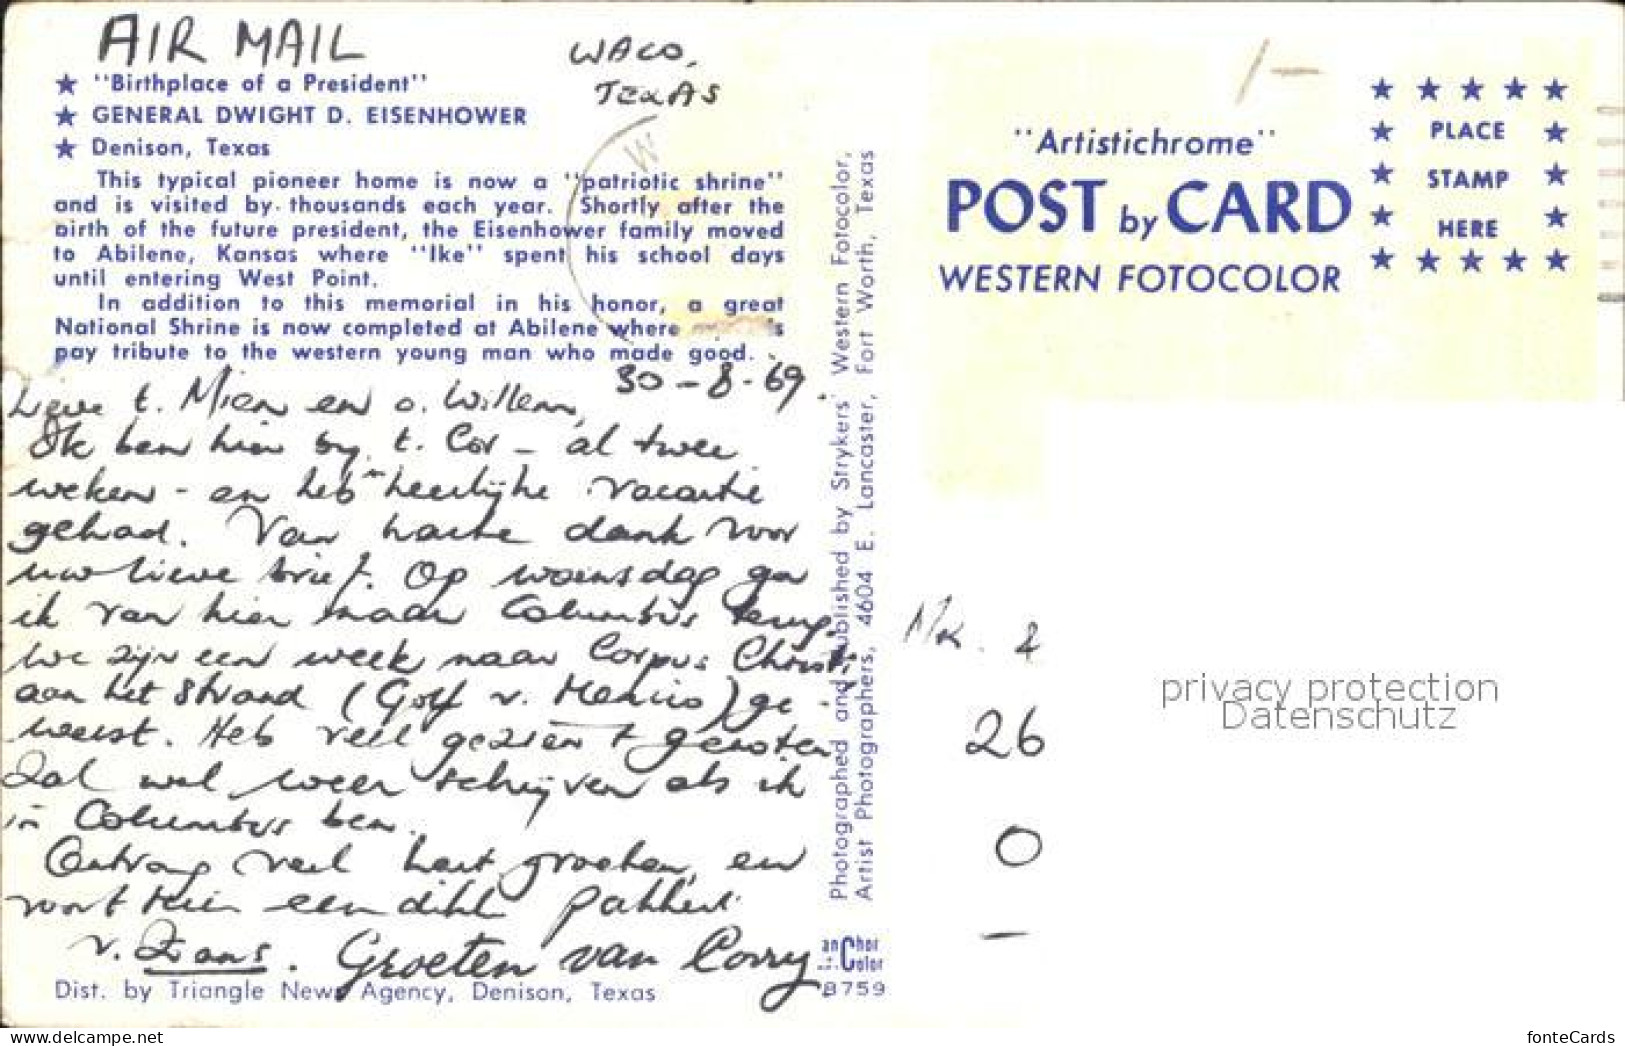 AIR MAIL
WACO,
TEXAS
★ "Birthplace of a President"
★ GENERAL DWIGHT D. EISENHOWER
★ Denison, Texas
This typical pioneer home is now a "patriotic shrine"
and is visited by thousands each year. Shortly after the
birth of the future president, the Eisenhower family moved
to Abilene, Kansas where "Ike" spent his school days
until entering West Point.
In addition to this memorial in his honor, a great
National Shrine is now completed at Abilene where
pay tribute to the western young man who made good.
30-8-69.
Lieve t. Mien en o. Willem,
Ik ben hier by t. Cor - al twee
weken - en heb 'n heerlijke vacantie
gehad. Van harte dank voor
uw lieve brief. Op woensdag ga
ik van hier naar Columbus terug.
We zijn een week naar Corpus Christi
aan het strand (Golf v. Mexico) ge-
weest. Heb veel gezien + genoten
Zal wel weer schrijven als ik
in Columbus ben.
Ontvang veel hart. groeten, en
een dikke pakkerd
v. Zans. Groeten van Corry
Dist. by Triangle News Agency, Denison, Texas
Photographed and Published by Strykers' Western Fotocolor,
Artist Photographers, 4604 E. Lancaster, Fort Worth, Texas
anChor
Color
B759
1/-
"Artistichrome"
POST by CARD
WESTERN FOTOCOLOR
PLACE
STAMP
HERE
26
0
privacy protection
Datenschutz
Delcampe.net
fonteCards